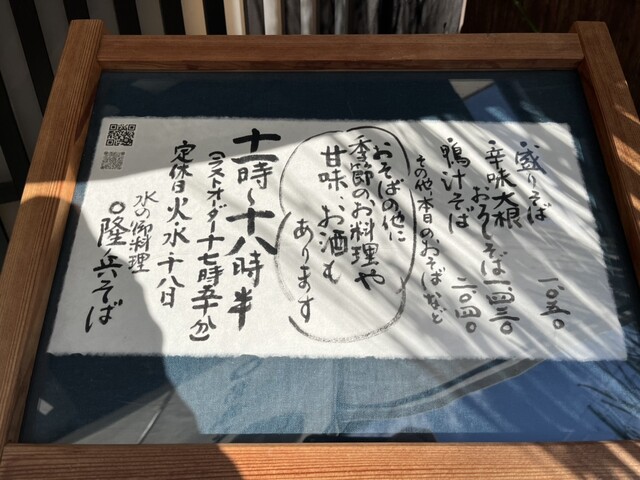 ・盛りそば 一、〇五〇
・辛味大根
おろしそば 一、四三〇
・鴨汁そば 二、〇四〇
その他、本日のおそばなど
おそばの他に
季節のお料理や
甘味、お酒も
あります
十一時～十八時半
(ラストオーダー十七時
定休日火水、十八日
水の御料理
隆兵そば